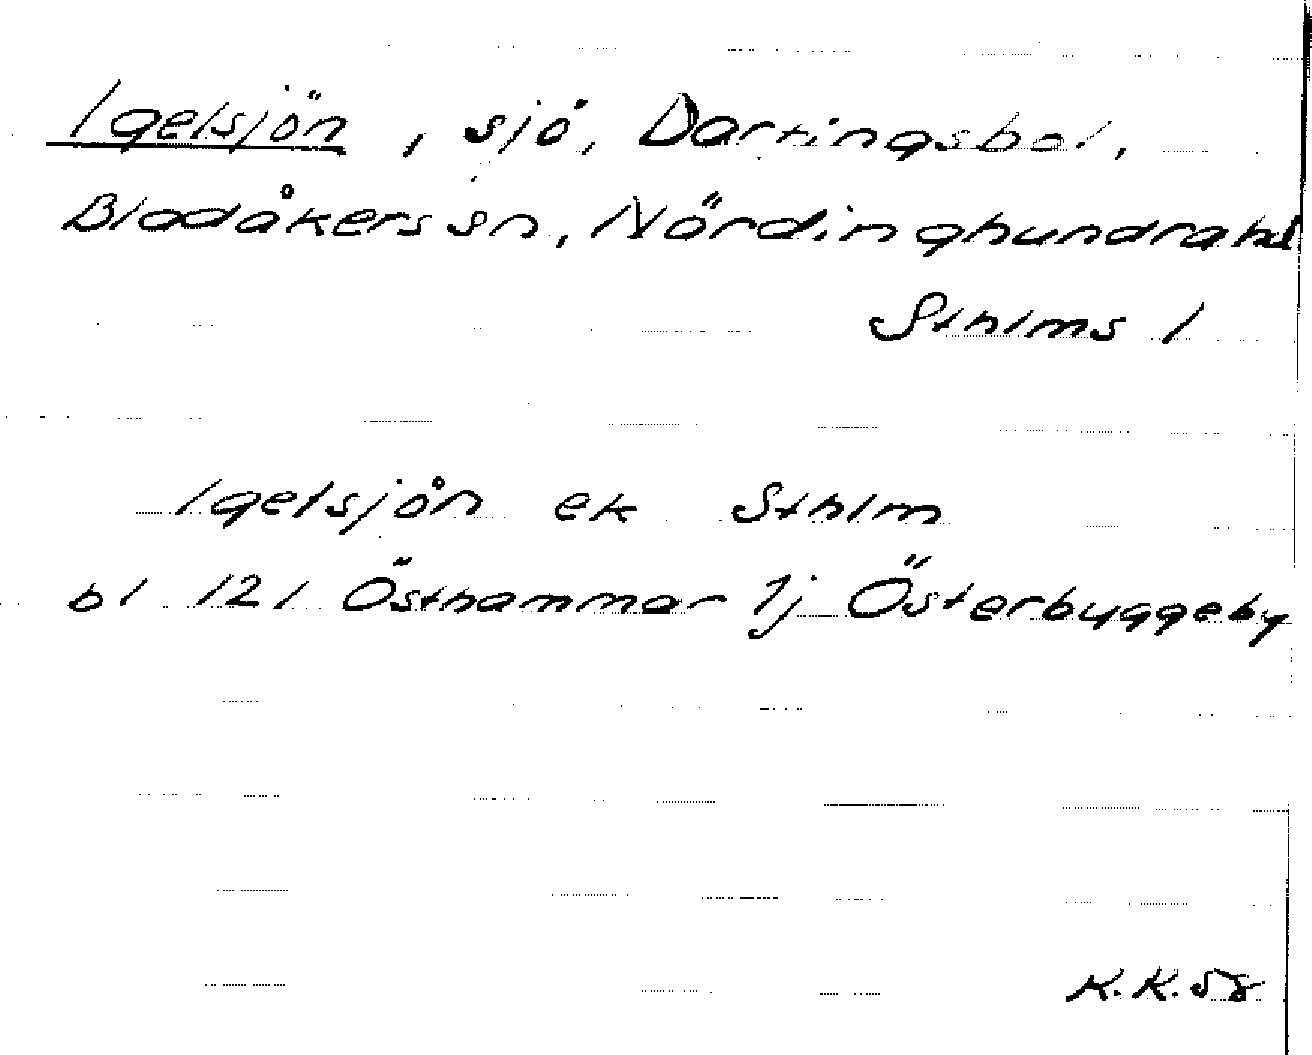 Igelsjön, sjö, Dartingsbol,
Bladåkers sn, Närdinghundra hd
Sthlms l
Igelsjön ek Sthlm
bl 121 Östhammar 1j Österbyggeby
K.K.58